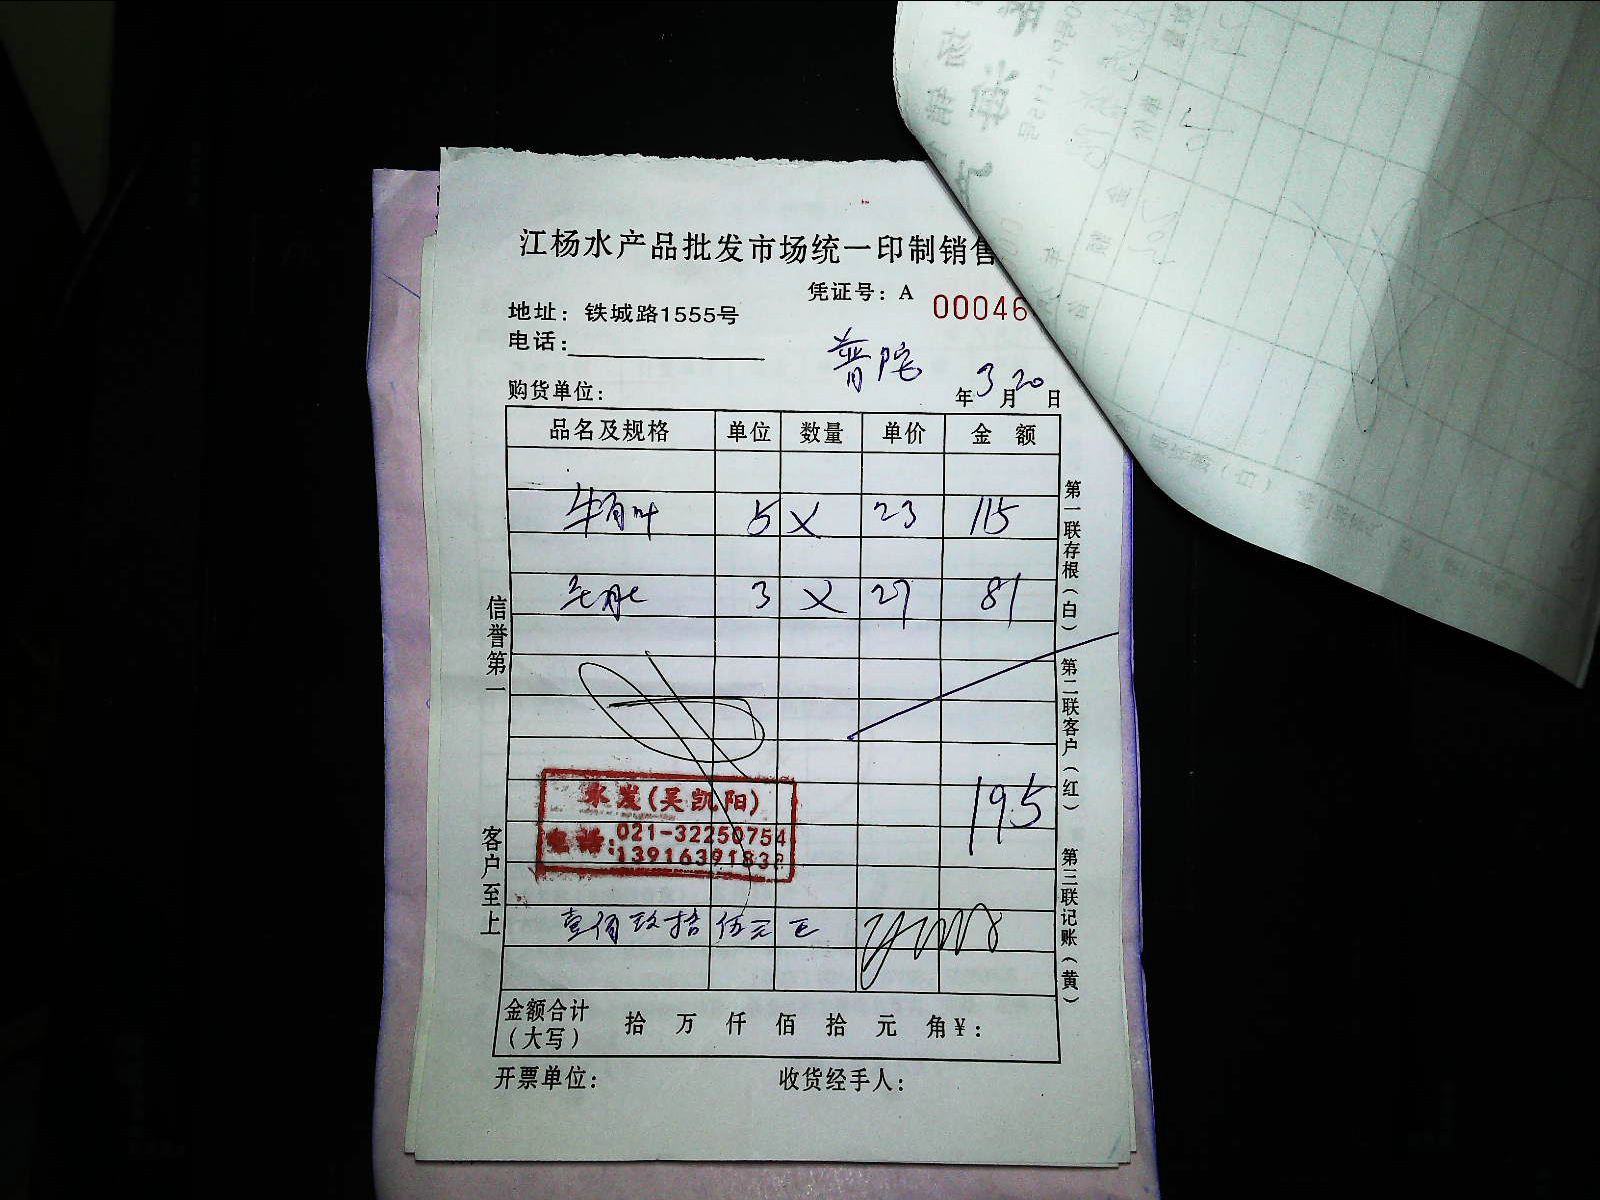 江杨水产品批发市场统一印制销售
凭证号：A 00046
地址：铁城路1555号
电话：
普陀
购货单位： 年3月20日
品名及规格 单位 数量 单价 金额
牛百叶 5 × 23 115
毛肚 3 × 27 81
195
水发(吴凯阳)
电话:021-32250754
1391639183
壹佰玖拾伍元正
金额合计（大写） 拾 万 仟 佰 拾 元 角 ¥：
开票单位： 收货经手人：
信誉第一
客户至上
第一联存根（白） 第二联客户（红） 第三联记账（黄）